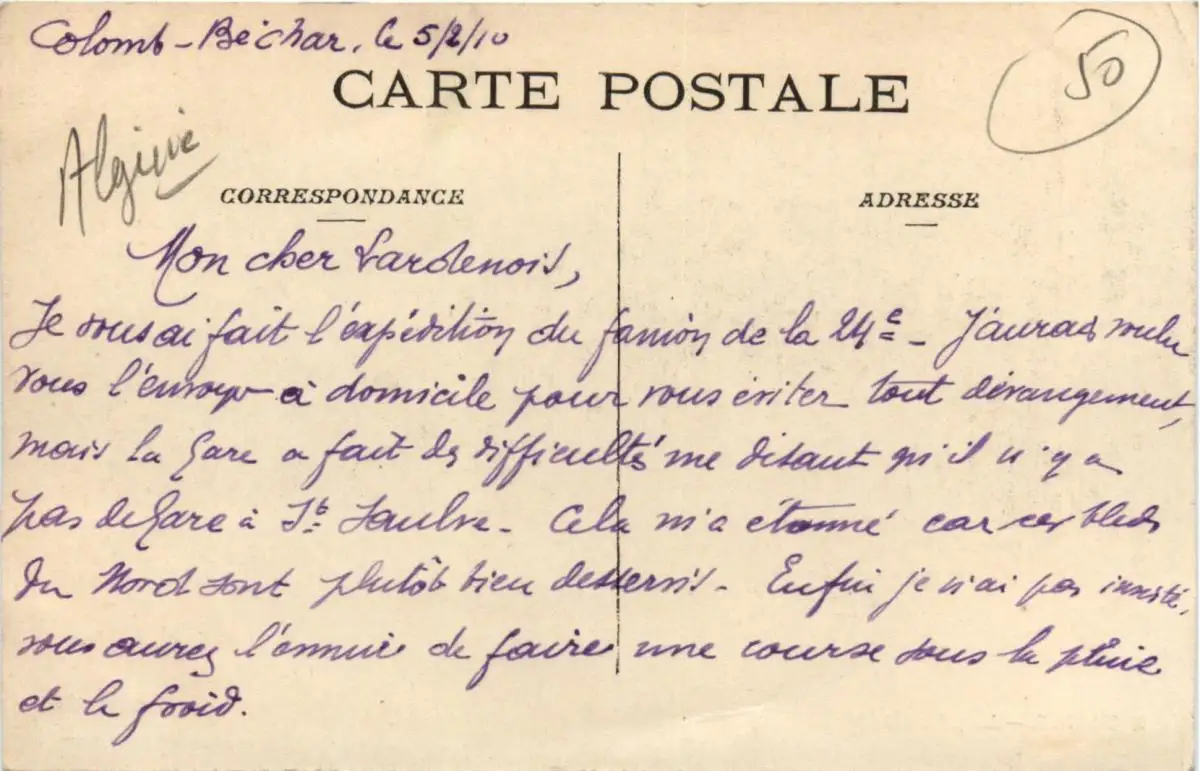 Colomb-Béchar, le 5/2/10
50
CARTE POSTALE
Algérie
CORRESPONDANCE
ADRESSE
Mon cher Lardenois,
Je vous ai fait l'expédition du fanion de la 24e - J'aurais voulu
vous l'envoyer à domicile pour vous éviter tout dérangement,
mais la gare a fait des difficultés me disant qu'il n'y a
pas de gare à St Saulve - Cela m'a étonné car ces bleds
du Nord sont plutôt bien desservis - Enfin je n'ai pas insisté,
vous aurez l'ennui de faire une course sous la pluie
et le froid.